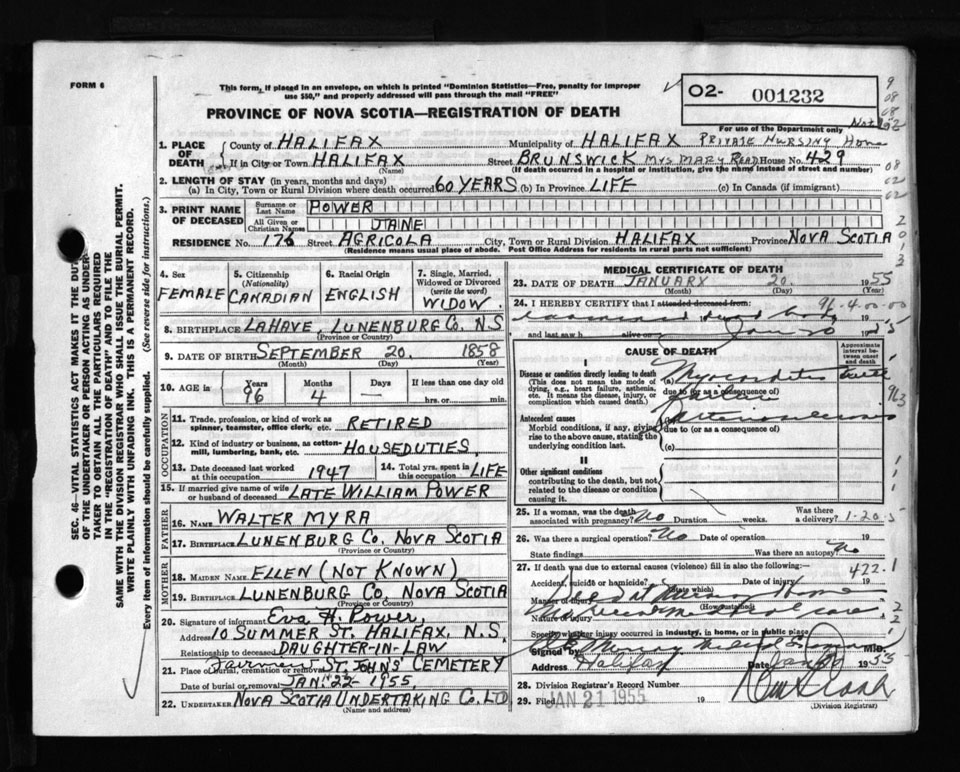 FORM 6
This form, if placed in an envelope, on which is printed "Dominion Statistics—Free, penalty for improper
use $50," and properly addressed will pass through the mail "FREE"
O2- 001232
PROVINCE OF NOVA SCOTIA—REGISTRATION OF DEATH
For use of the Department only
1. PLACE OF DEATH
County of HALIFAX Municipality of HALIFAX PRIVATE NURSING HOME
If in City or Town HALIFAX Street BRUNSWICK MRS MARY READ House No. 429
(Name) (If death occurred in a hospital or institution, give the name instead of street and number)
2. LENGTH OF STAY (in years, months and days)
(a) In City, Town or Rural Division where death occurred 60 YEARS (b) In Province LIFE (c) In Canada (if immigrant)
3. PRINT NAME OF DECEASED
Surname or Last Name POWER
All Given or Christian Names JANE
RESIDENCE No. 176 Street AGRICOLA City, Town or Rural Division HALIFAX Province NOVA SCOTIA
(Residence means usual place of abode. Post Office Address for residents in rural parts not sufficient)
4. Sex FEMALE
5. Citizenship (Nationality) CANADIAN
6. Racial Origin ENGLISH
7. Single, Married, Widowed or Divorced (write the word) WIDOW.
8. BIRTHPLACE LAHAVE, LUNENBURG CO. N.S
(Province or Country)
9. DATE OF BIRTH SEPTEMBER 20. 1858
(Month) (Day) (Year)
10. AGE in Years 96 Months 4 Days — If less than one day old hrs. or min.
OCCUPATION
11. Trade, profession, or kind of work as spinner, teamster, office clerk, etc. RETIRED
12. Kind of industry or business, as cotton-mill, lumbering, bank, etc. HOUSEDUTIES.
13. Date deceased last worked at this occupation 1947
14. Total yrs. spent in this occupation LIFE
15. If married give name of wife or husband of deceased LATE WILLIAM POWER
FATHER
16. NAME WALTER MYRA
17. BIRTHPLACE LUNENBURG CO. NOVA SCOTIA
(Province or Country)
MOTHER
18. MAIDEN NAME ELLEN (NOT KNOWN)
19. BIRTHPLACE LUNENBURG CO, NOVA SCOTIA
(Province or Country)
20. Signature of informant Eva H. Power,
Address 10 SUMMER ST. HALIFAX, N.S.
Relationship to deceased DAUGHTER-IN-LAW
21. Place of burial, cremation or removal Fairview ST. JOHNS' CEMETERY
Date of burial or removal JAN. 22 - 1955,
22. UNDERTAKER NOVA SCOTIA UNDERTAKING CO. LTD
(Name and address)
MEDICAL CERTIFICATE OF DEATH
23. DATE OF DEATH JANUARY 20. 1955
(Month) (Day)
24. I HEREBY CERTIFY that I attended deceased from: 96-4-00-00
examined dead body 19
and last saw h alive on Jan 20 1955
CAUSE OF DEATH
Approximate interval between onset and death
I
Disease or condition directly leading to death (a) Myocarditis
(This does not mean the mode of dying, e.g., heart failure, asthenia, etc. It means the disease, injury, or complication which caused death.)
due to (or as a consequence of)
Antecedent causes
Morbid conditions, if any, giving rise to the above cause, stating the underlying condition last.
(b) Arteriosclerosis
due to (or as a consequence of)
(c)
II
Other significant conditions
contributing to the death, but not related to the disease or condition causing it.
25. If a woman, was the death associated with pregnancy? No Duration weeks. Was there a delivery? 1-20-5
26. Was there a surgical operation? No Date of operation 19
State findings Was there an autopsy? No
27. If death was due to external causes (violence) fill in also the following:— 422.1
Accident, suicide or homicide? (State which) Date of injury 19
Manner of injury (How sustained)
Nature of injury
Specify whether injury occurred in industry, in home, or in public place
Signed by
Address Halifax Date Jan 20 1955
28. Division Registrar's Record Number
29. Filed JAN 21 1955 19
(Division Registrar)
SEC. 46—VITAL STATISTICS ACT MAKES IT THE DUTY
OF THE UNDERTAKER OR PERSON ACTING AS UNDER-
TAKER TO OBTAIN ALL THE PARTICULARS REQUIRED
IN THE "REGISTRATION OF DEATH" AND TO FILE THE
SAME WITH THE DIVISION REGISTRAR WHO SHALL ISSUE THE BURIAL PERMIT.
WRITE PLAINLY WITH UNFADING INK. THIS IS A PERMANENT RECORD.
Every item of information should be carefully supplied. (See reverse side for instructions.)